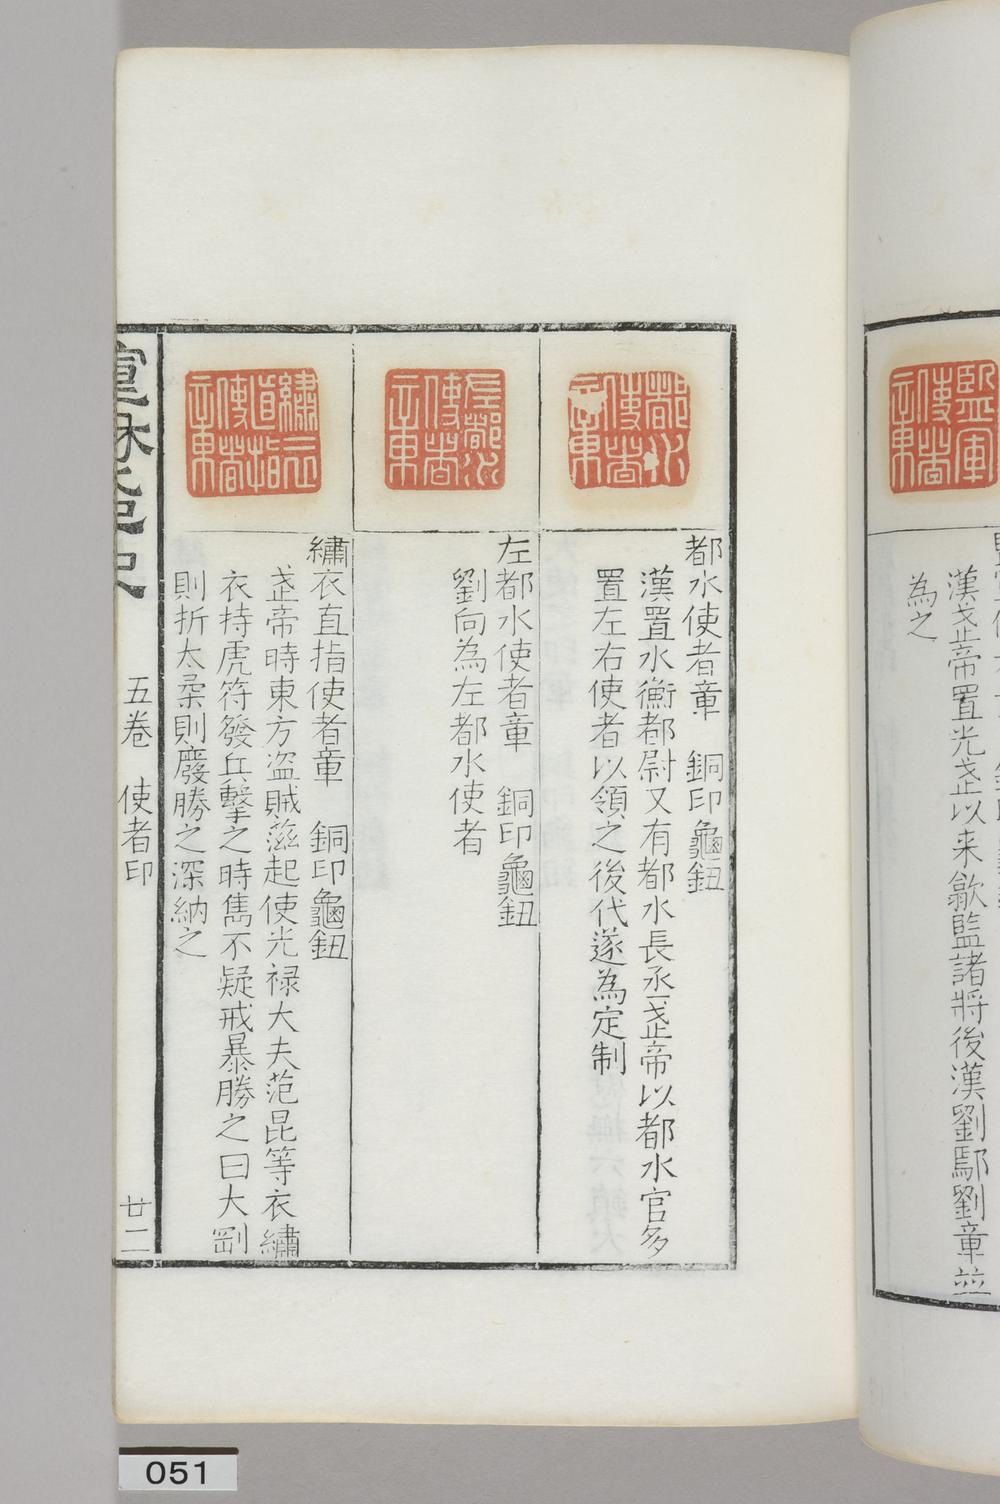 漢武帝置光武以来歙監諸將後漢劉鄢劉章並
為之
都水使者章　銅印龜鈕
漢置水衡都尉又有都水長丞武帝以都水官多
置左右使者以領之後代遂為定制
左都水使者章　銅印龜鈕
劉向為左都水使者
繡衣直指使者章　銅印龜鈕
武帝時東方盗賊滋起使光禄大夫范昆等衣繡
衣持虎符發兵擊之時雋不疑戒暴勝之曰大剛
則折太柔則廢勝之深納之
五卷　使者印
廿二
051